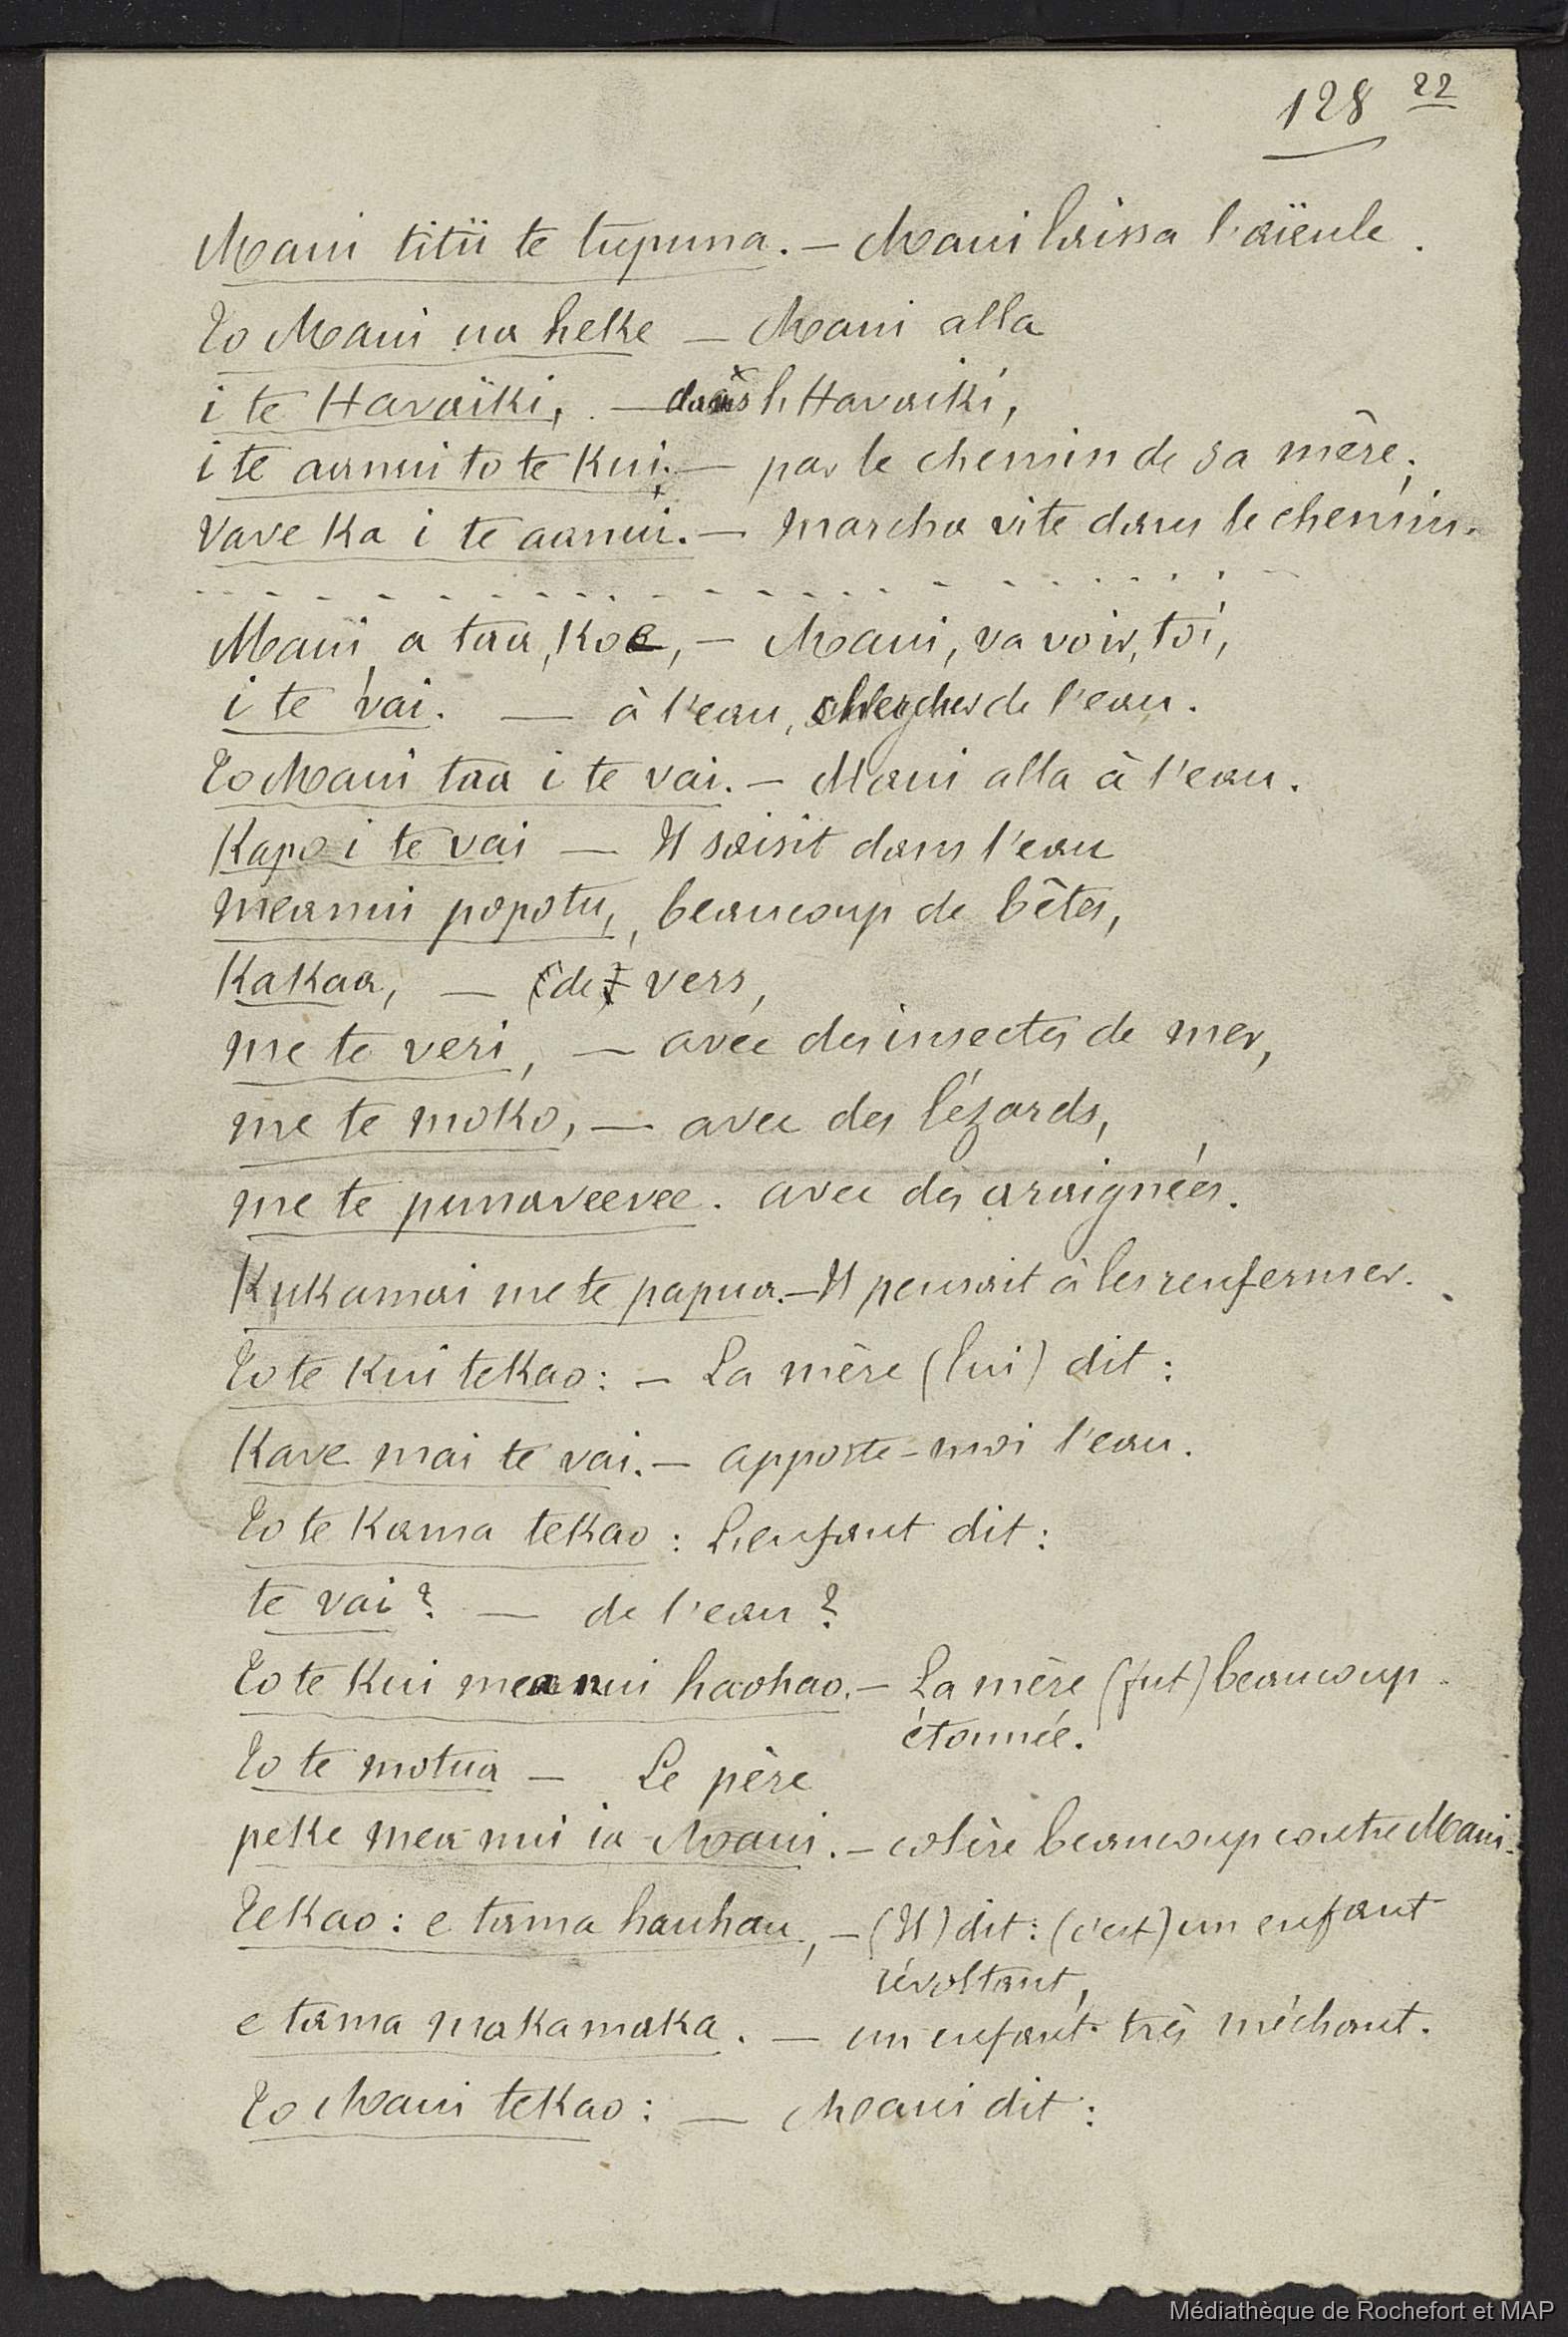 128 22
Maui titii te tupuna. — Maui laissa l'aïeule.
To Maui ua heke — Maui alla
i te Havaïki, — dans le Havaiki,
i te aanui to te Kui. — par le chemin de sa mère;
Vave Ka i te aanui. — marcha vite dans le chemin.
Maui a taa, Koe, — Maui, va voir, toi,
i te vai. — à l'eau, chercher de l'eau.
To Maui taa i te vai. — Maui alla à l'eau.
Kapo i te vai — Il saisit dans l'eau
meanui popotu, beaucoup de bêtes,
Kakaa, — (de) vers,
me te veri, — avec des insectes de mer,
me te moko, — avec des lézards,
me te punaveevee. avec des araignées.
Kukamai me te papua. — Il pensait à les renfermer.
To te Kui tekao: — La mère (lui) dit:
Kave mai te vai. — apporte-moi l'eau.
To te Kama tekao: L'enfant dit:
te vai? — de l'eau?
To te Kui meanui haohao. — La mère (fut) beaucoup
étonnée.
To te motua — Le père
peke mea nui ia Maui. — colère beaucoup contre Maui.
Tekao: e tama hauhau, — (Il) dit: (c'est) un enfant
révoltant,
e tama makamaka. — un enfant très méchant.
To Maui tekao: — Maui dit:
Médiathèque de Rochefort et MAP